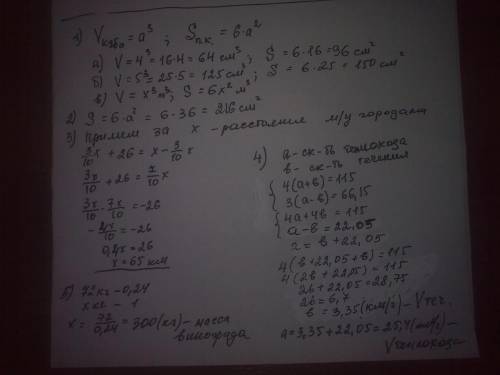 1) Vкуба = a³ ; Sп.к. = 6·a²
а) V = 4³ = 16·4 = 64 см³, S = 6·16 = 96 см²
б) V = 5³ = 25·5 = 125 см³; S = 6·25 = 150 см²
в) V = x³ м³; S = 6x² м²;
2) S = 6·a² = 6·36 = 216 см²
3) Примем за x - расстояние м/у городами
3x/10 + 26 = x - 3/10 x
3x/10 + 26 = 7/10 x
3x/10 - 7x/10 = -26
- 4x/10 = -26
0,4x = 26
x = 65 км
4) а - ск-ть теплохода
в - ск-ть течения
{ 4(а+в) = 115
3(а-в) = 66,15
{ 4а+4в = 115
а-в = 22,05
а = в + 22,05
4(в+22,05+в) = 115
4(2в+22,05) = 115
2в + 22,05 = 28,75
2в = 6,7
в = 3,35 (км/ч) - Vтеч.
а = 3,35 + 22,05 = 25,4 (км/ч) -
Vтеплохода
5) 72 кг - 0,24
x кг - 1
x = 72/0,24 = 300 (кг) - масса
винограда